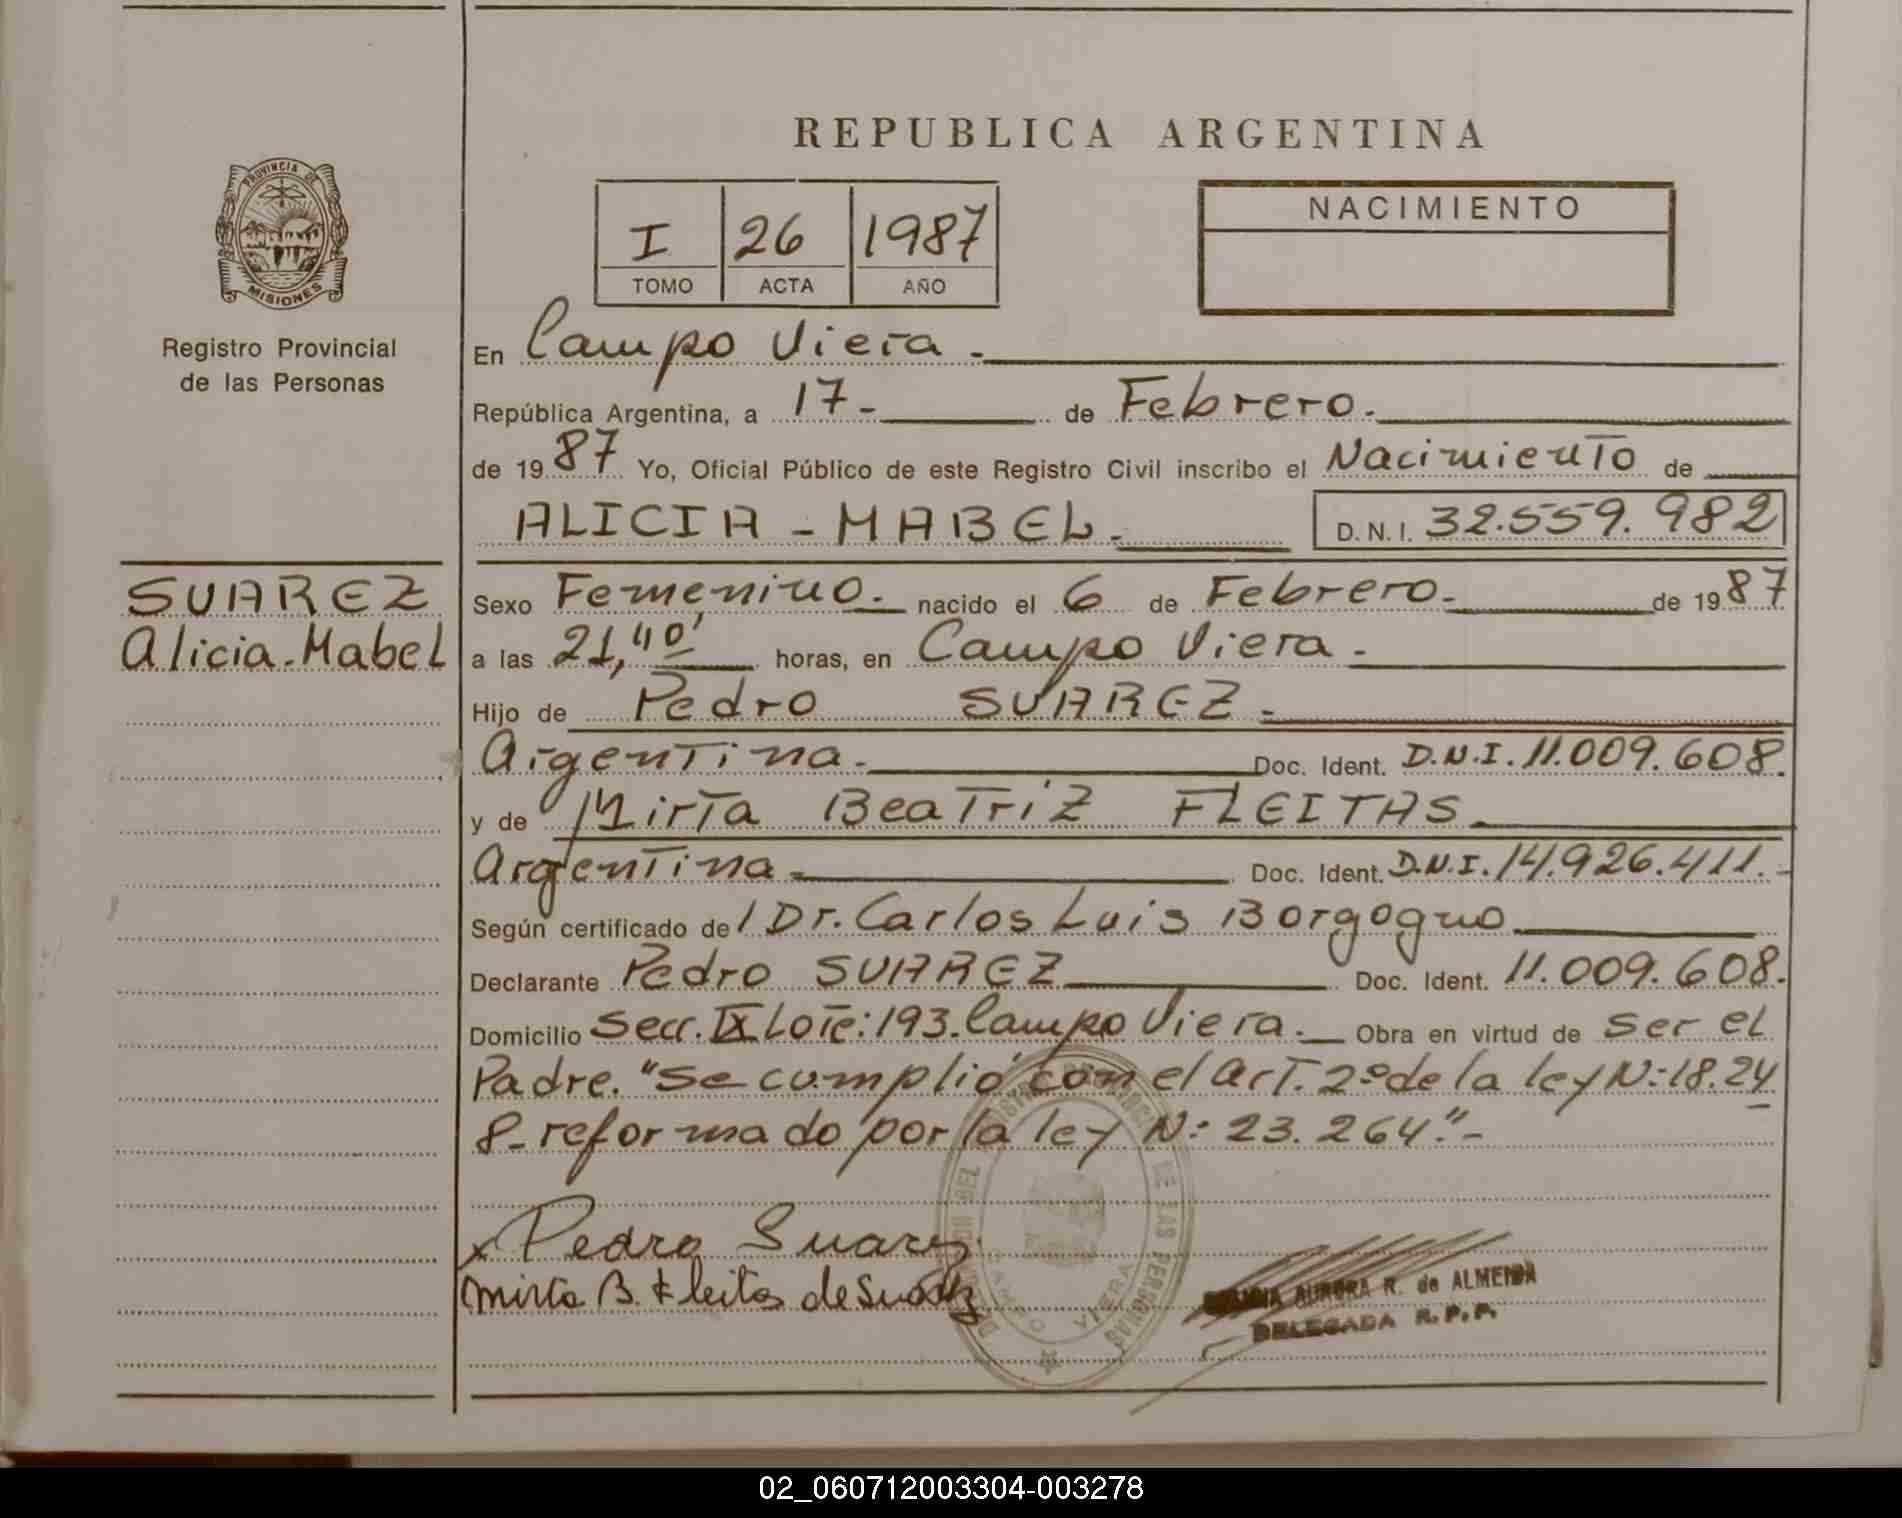 REPUBLICA ARGENTINA
PROVINCIA DE
MISIONES
Registro Provincial
de las Personas
I 26 1987
TOMO ACTA AÑO
NACIMIENTO
En Campo Viera.-
República Argentina, a 17- de Febrero.
de 1987 Yo, Oficial Público de este Registro Civil inscribo el Nacimiento de
ALICIA - MABEL.- D.N.I. 32.559.982
SUAREZ
Alicia-Mabel
Sexo Femenino.- nacido el 6 de Febrero.- de 1987
a las 21,"40' horas, en Campo Viera.-
Hijo de Pedro SUAREZ.-
Argentina.- Doc. Ident. D.N.I. 11.009.608.
y de Mirta Beatriz FLEITAS.-
Argentina.- Doc. Ident. D.N.I. 14.926.411.-
Según certificado de / Dr. Carlos Luis Borgogno
Declarante Pedro SUAREZ Doc. Ident. 11.009.608.
Domicilio Secc. IX Lote: 193. Campo Viera.- Obra en virtud de ser el
Padre. "Se cumplió con el art. 2º de la ley N: 18.24
8- reformado por la ley N: 23.264."-
x Pedro Suarez
Mirta B. Fleitas de Suarez
CAMPO VIERA
AURORA R. de ALMEIDA
DELEGADA R.P.P.
02_060712003304-003278